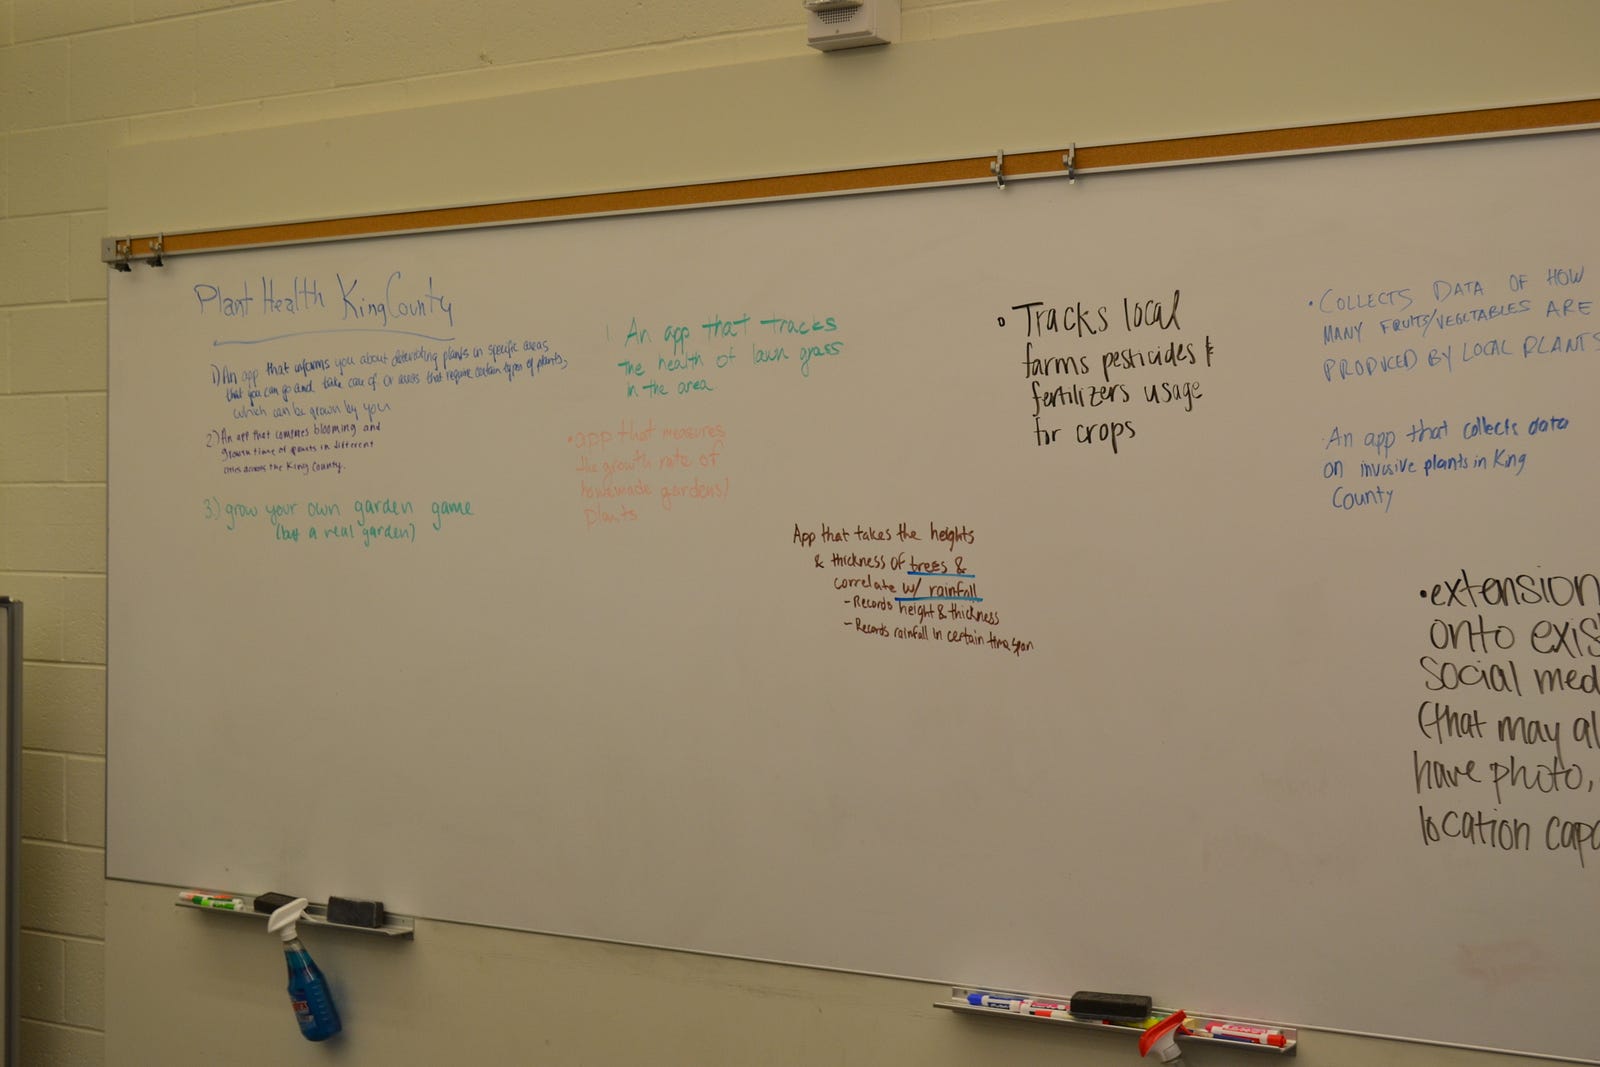 Plant Health King County
1) An app that informs you about deteriorating plants in specific areas
that you can go and take care of or areas that require certain types of plants,
which can be grown by you
2) An app that compares blooming and
growth time of plants in different
cities across the King County.
3.) grow your own garden game
(but a real garden)
1. An app that tracks
the health of lawn grass
in the area
• app that measures
the growth rate of
homemade gardens/
plants
App that takes the heights
& thickness of trees &
correlate w/ rainfall
- Records height & thickness
- Records rainfall in certain time span
• Tracks local
farms pesticides &
fertilizers usage
for crops
• COLLECTS DATA OF HOW
MANY FRUITS/VEGETABLES ARE
PRODUCED BY LOCAL PLANTS
· An app that collects data
on invasive plants in King
County
• extension
onto exis
social med
(that may al
have photo,
location capa